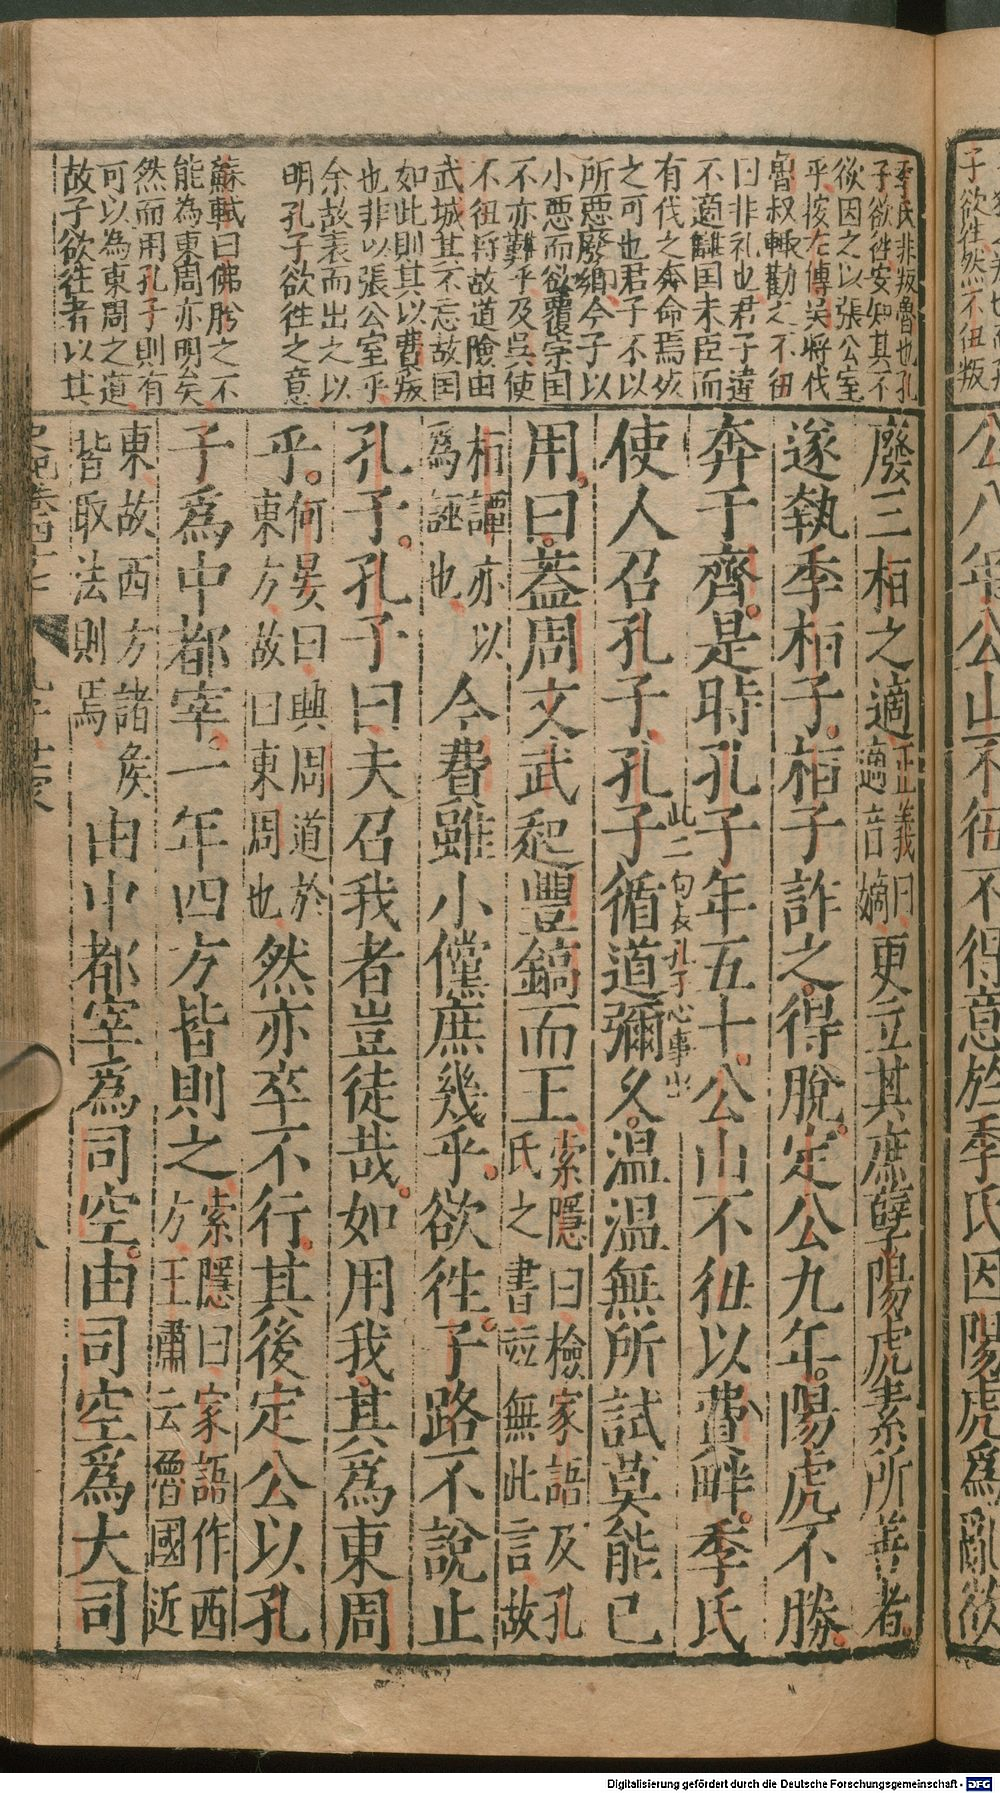 季氏非叛魯也孔
子欲徃安知其不
欲因之以張公室
乎按左傳吳將伐
魯叔輒勸之不狃
曰非礼也君子違
不適讎国未臣而
有伐之奔命焉死
之可也君子不以
所惡廢鄉今子以
小惡而欲覆宗国
不亦難乎及吳使
不狃将故道險由
武城其不忘故国
如此則其以費叛
也非以張公室乎
余故表而出之以
明孔子欲徃之意
蘇軾曰佛肸之不
能為東周亦明矣
然而用孔子則有
可以為東周之道
故子欲徃者以其
廢三桓之適正義曰適音嫡更立其庶孽陽虎素所善者
遂執季桓子桓子詐之得脫定公九年陽虎不勝
奔于齊是時孔子年五十公山不狃以費畔季氏
此二句表孔子心事出
使人召孔子孔子循道彌久温温無所試莫能已
用曰蓋周文武起豐鎬而王索隱曰檢家語及孔氏之書並無此言故
桓譚亦以為誣也今費雖小儻庶幾乎欲徃子路不說止
孔子孔子曰夫召我者豈徒哉如用我其爲東周
乎何晏曰興周道於東方故曰東周也然亦卒不行其後定公以孔
子爲中都宰一年四方皆則之索隱曰家語作西方王肅云魯國近
東故西方諸矦皆取法則焉由中都宰爲司空由司空爲大司
子欲徃然不狃叛
公八年公山不狃不得意於季氏因陽虎爲亂欲
Digitalisierung gefördert durch die Deutsche Forschungsgemeinschaft - DFG